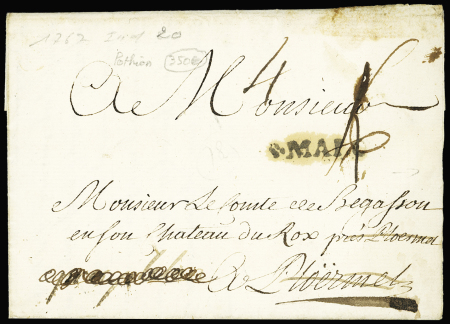 20
Pothion 350€
A Monsieur
4
MALO
Monsieur Le Comte de Begasson
en son Chateau du Rox près Ploermel
A Ploërmel